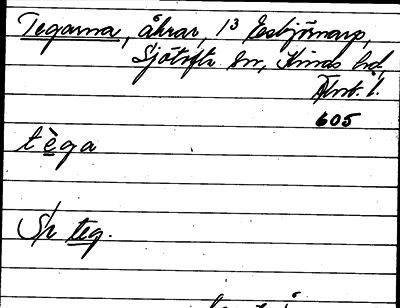 Tegarna, åkrar, 13 Esbjörnarp,
Sjötofta sn, Kinds hd,
Älvb. l.
605
tèga
Sg teg.